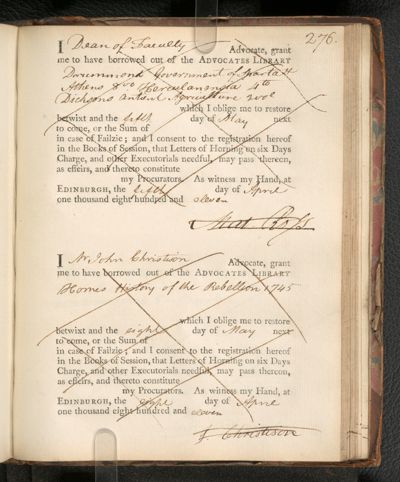 276.
I Dean of Faculty Advocate, grant
me to have borrowed out of the ADVOCATES LIBRARY
Drummonds Government of Sparta &
Athens 8vo Herculanensia 4to
Dicksons Antient Agriculture 2 vol
which I oblige me to restore
betwixt and the fifth day of May next
to come, or the Sum of
in case of Failzie; and I consent to the registration hereof
in the Books of Session, that Letters of Horning on six Days
Charge, and other Executorials needful, may pass thereon,
as effeirs, and thereto constitute
my Procurators. As witness my Hand, at
EDINBURGH, the fifth day of April
one thousand eight hundred and eleven
Mat Ross
I Mr John Christison Advocate, grant
me to have borrowed out of the ADVOCATES LIBRARY
Homes History of the Rebellion 1745
which I oblige me to restore
betwixt and the eight day of May next
to come, or the Sum of
in case of Failzie; and I consent to the registration hereof
in the Books of Session, that Letters of Horning on six Days
Charge, and other Executorials needful, may pass thereon,
as effeirs, and thereto constitute
my Procurators. As witness my Hand, at
EDINBURGH, the day of April
one thousand eight hundred and eleven
J Christison